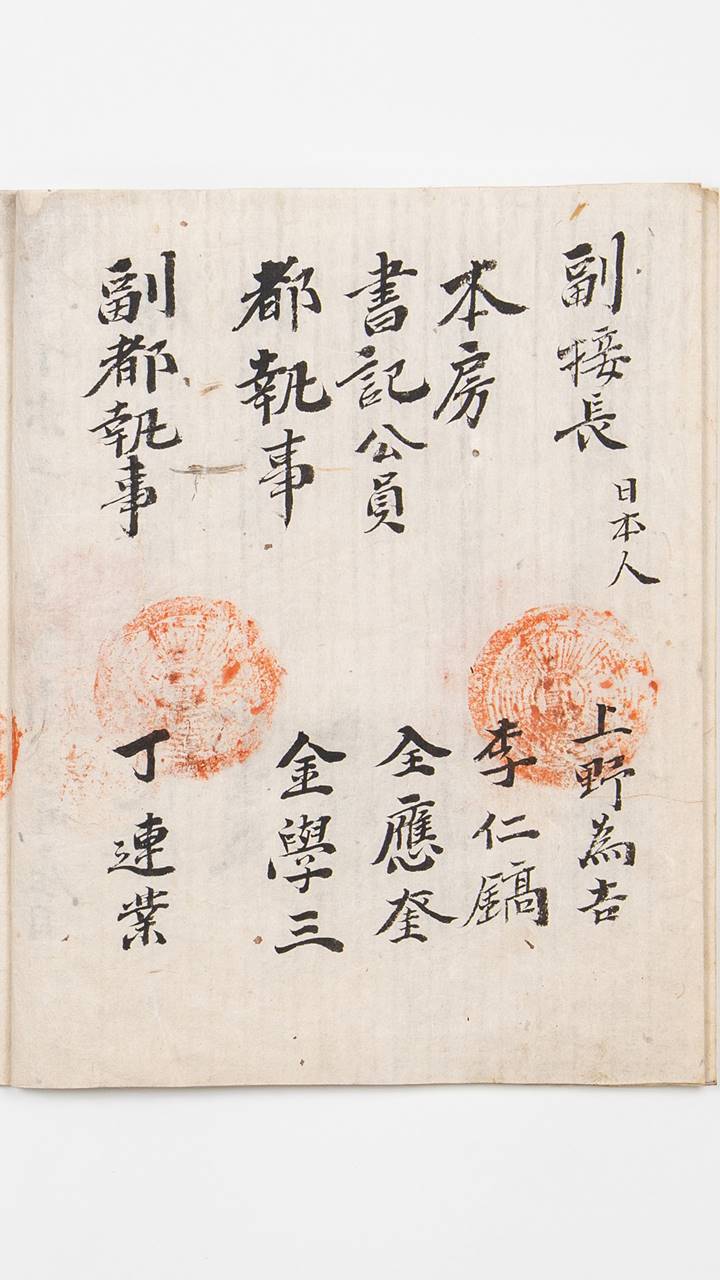 副接長 日本人 上野為吉
本房 李仁鎬
書記公員 全應奎
都執事 金學三
副都執事 丁連業